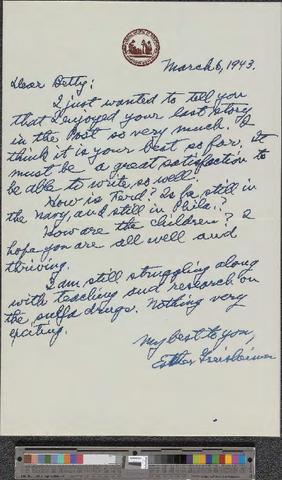 March 6, 1943.
Dear Betty:
I just wanted to tell you
that I enjoyed your last story
in the Post so very much. I
think it is your best so far. It
must be a great satisfaction to
be able to write so well!
How is Ferd? Is he still in
the navy, and still in Phila.?
How are the children? I
hope you are all well and
thriving.
I am still struggling along
with teaching and research on
the sulfa drugs. Nothing very
exciting.
My best to you,
Esther Greisheimer